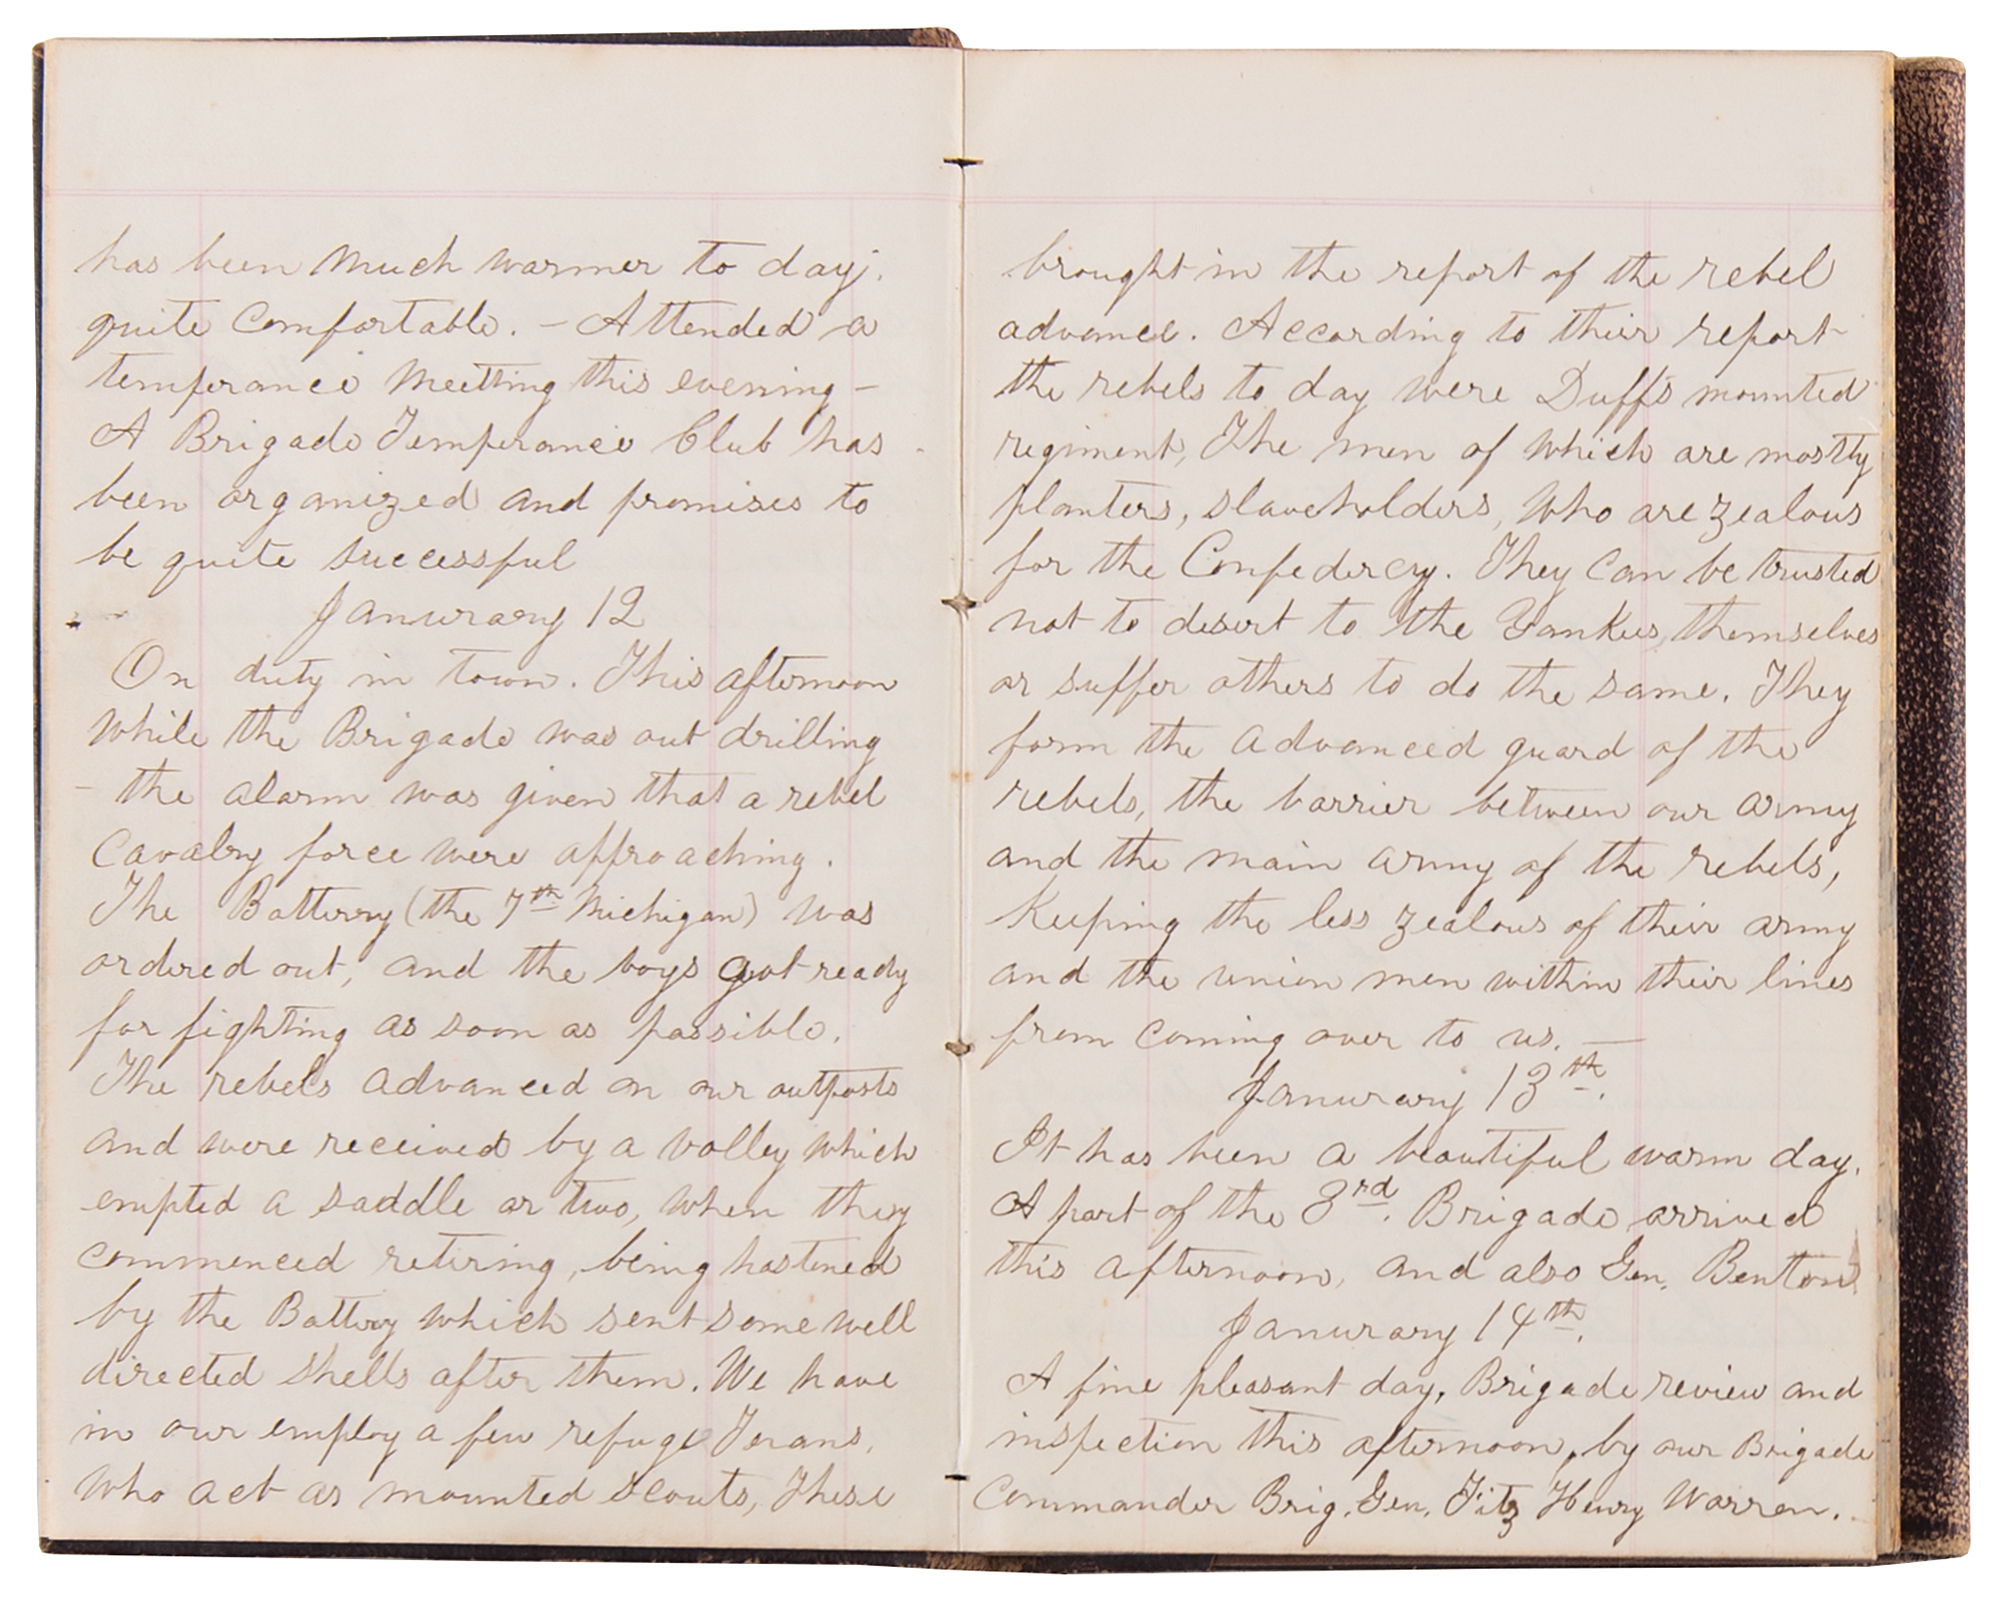 has been much warmer to day;
quite Comfortable. – Attended a
temperance Meeting this evening –
A Brigade Temperance Club has
been organized and promises to
be quite successful
Janurary 12
On duty in town. This afternoon
while the Brigade was out drilling
– the alarm was given that a rebel
Cavalry force were approaching.
The Batterry (the 7th Michigan) was
ordered out, and the boys got ready
for fighting as soon as possible.
The rebels advanced on our outposts
and were received by a volley which
empted a saddle or two, when they
commenced retiring, being hastened
by the Battery which sent some well
directed shells after them. We have
in our employ a few refuge Texans,
who act as mounted scouts, These
brought in the report of the rebel
advance. According to their report
the rebels to day were Duffs mounted
regiment, The men of which are mostly
planters, slaveholders, who are zealous
for the Confedercy. They can be trusted
not to desert to the Yankees, themselves
or suffer others to do the same. They
form the advanced guard of the
rebels, the barrier between our army
and the main army of the rebels,
Keeping the less zealous of their army
and the union men within their lines
from coming over to us. —
Janurary 13th.
It has been a beautiful warm day.
A part of the 3rd. Brigade arrived
this afternoon, and also Gen. Benton
Janurary 14th.
A fine pleasant day, Brigade review and
inspection this afternoon, by our Brigade
Commander Brig. Gen. Fitz Henry Warren.